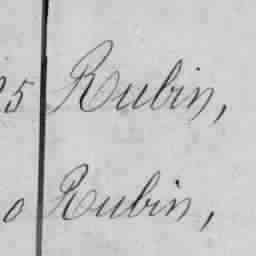 5 Rubin,
0 Rubin,